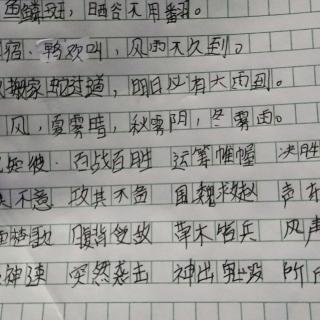 鱼鳞斑，晒谷不用翻。
宿.鸭欢叫，风雨不久到。
搬家蛇过道，明日必有大雨到。
风，夏雾晴，秋雾阴，冬雾雨。
知彼.百战百胜 运筹帷幄 决胜
不意 攻其不备 围魏救赵 声东
面楚歌 腹背受敌 草木皆兵 风声
神速 突然袭击 神出鬼没 所